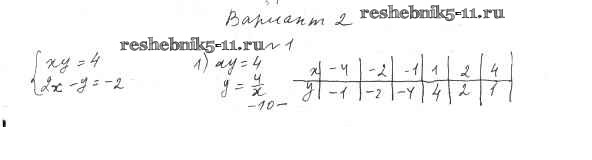 Вариант 2 reshebnik5-11.ru
reshebnik5-11.ru №1
{xy = 4
2x - y = -2
1) xy = 4
y = 4/x
x | -4 | -2 | -1 | 1 | 2 | 4
y | -1 | -2 | -4 | 4 | 2 | 1
-10-